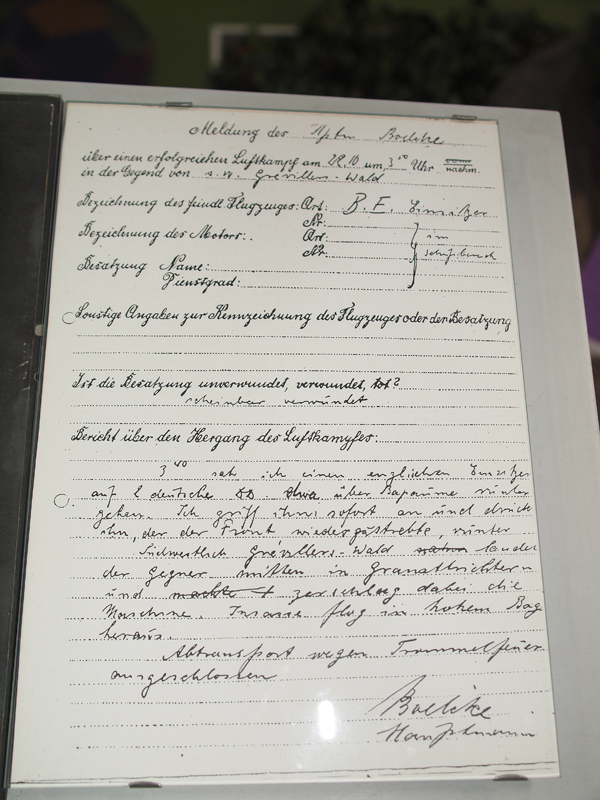 Meldung des Hptm Boelcke
über einen erfolgreichen Luftkampf am 22.10 um 3 40 Uhr vorm. nachm.
in der Gegend von s.w. Grévillers-Wald
Bezeichnung des feindl. Flugzeuges: Art: B.E. Einsitzer
Nr.
Bezeichnung des Motors: Art: im
Nr.
Besatzung Name:
Dienstgrad:
Sonstige Angaben zur Kennzeichnung des Flugzeuges oder der Besatzung
Ist die Besatzung unverwundet, verwundet, tot?
scheinbar verwundet
Bericht über den Hergang des Luftkampfes:
3 40 sah ich einen englischen Einsitzer
auf 2 deutsche etwa über Bapaume runter
gehen. Ich griff ihn sofort an und drück
ihn, der der Front wiederzustrebte, runter
Südwestlich Grévillers-Wald landet
der Gegner mitten in Granattrichtern
und machte zerschlug dabei die
Maschine. Insasse flog in hohem Bog
heraus.
Abtransport wegen Trommelfeuer
ausgeschlossen
Boelcke
Hauptmann